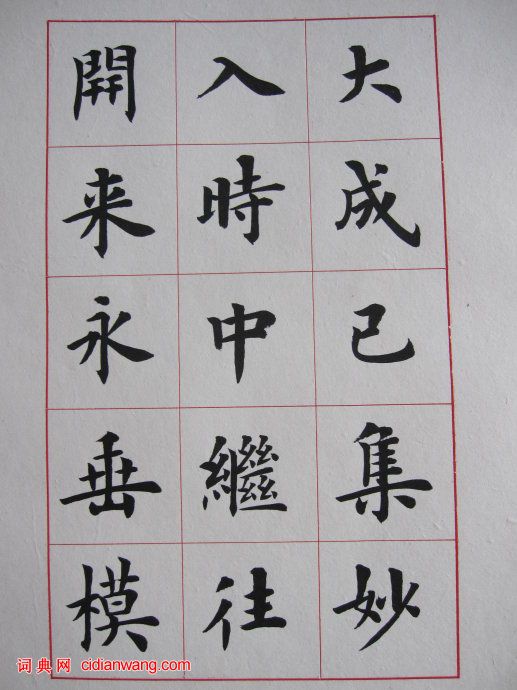 大成已集妙
入時中繼往
開来永垂模
词典网 cidianwang.com